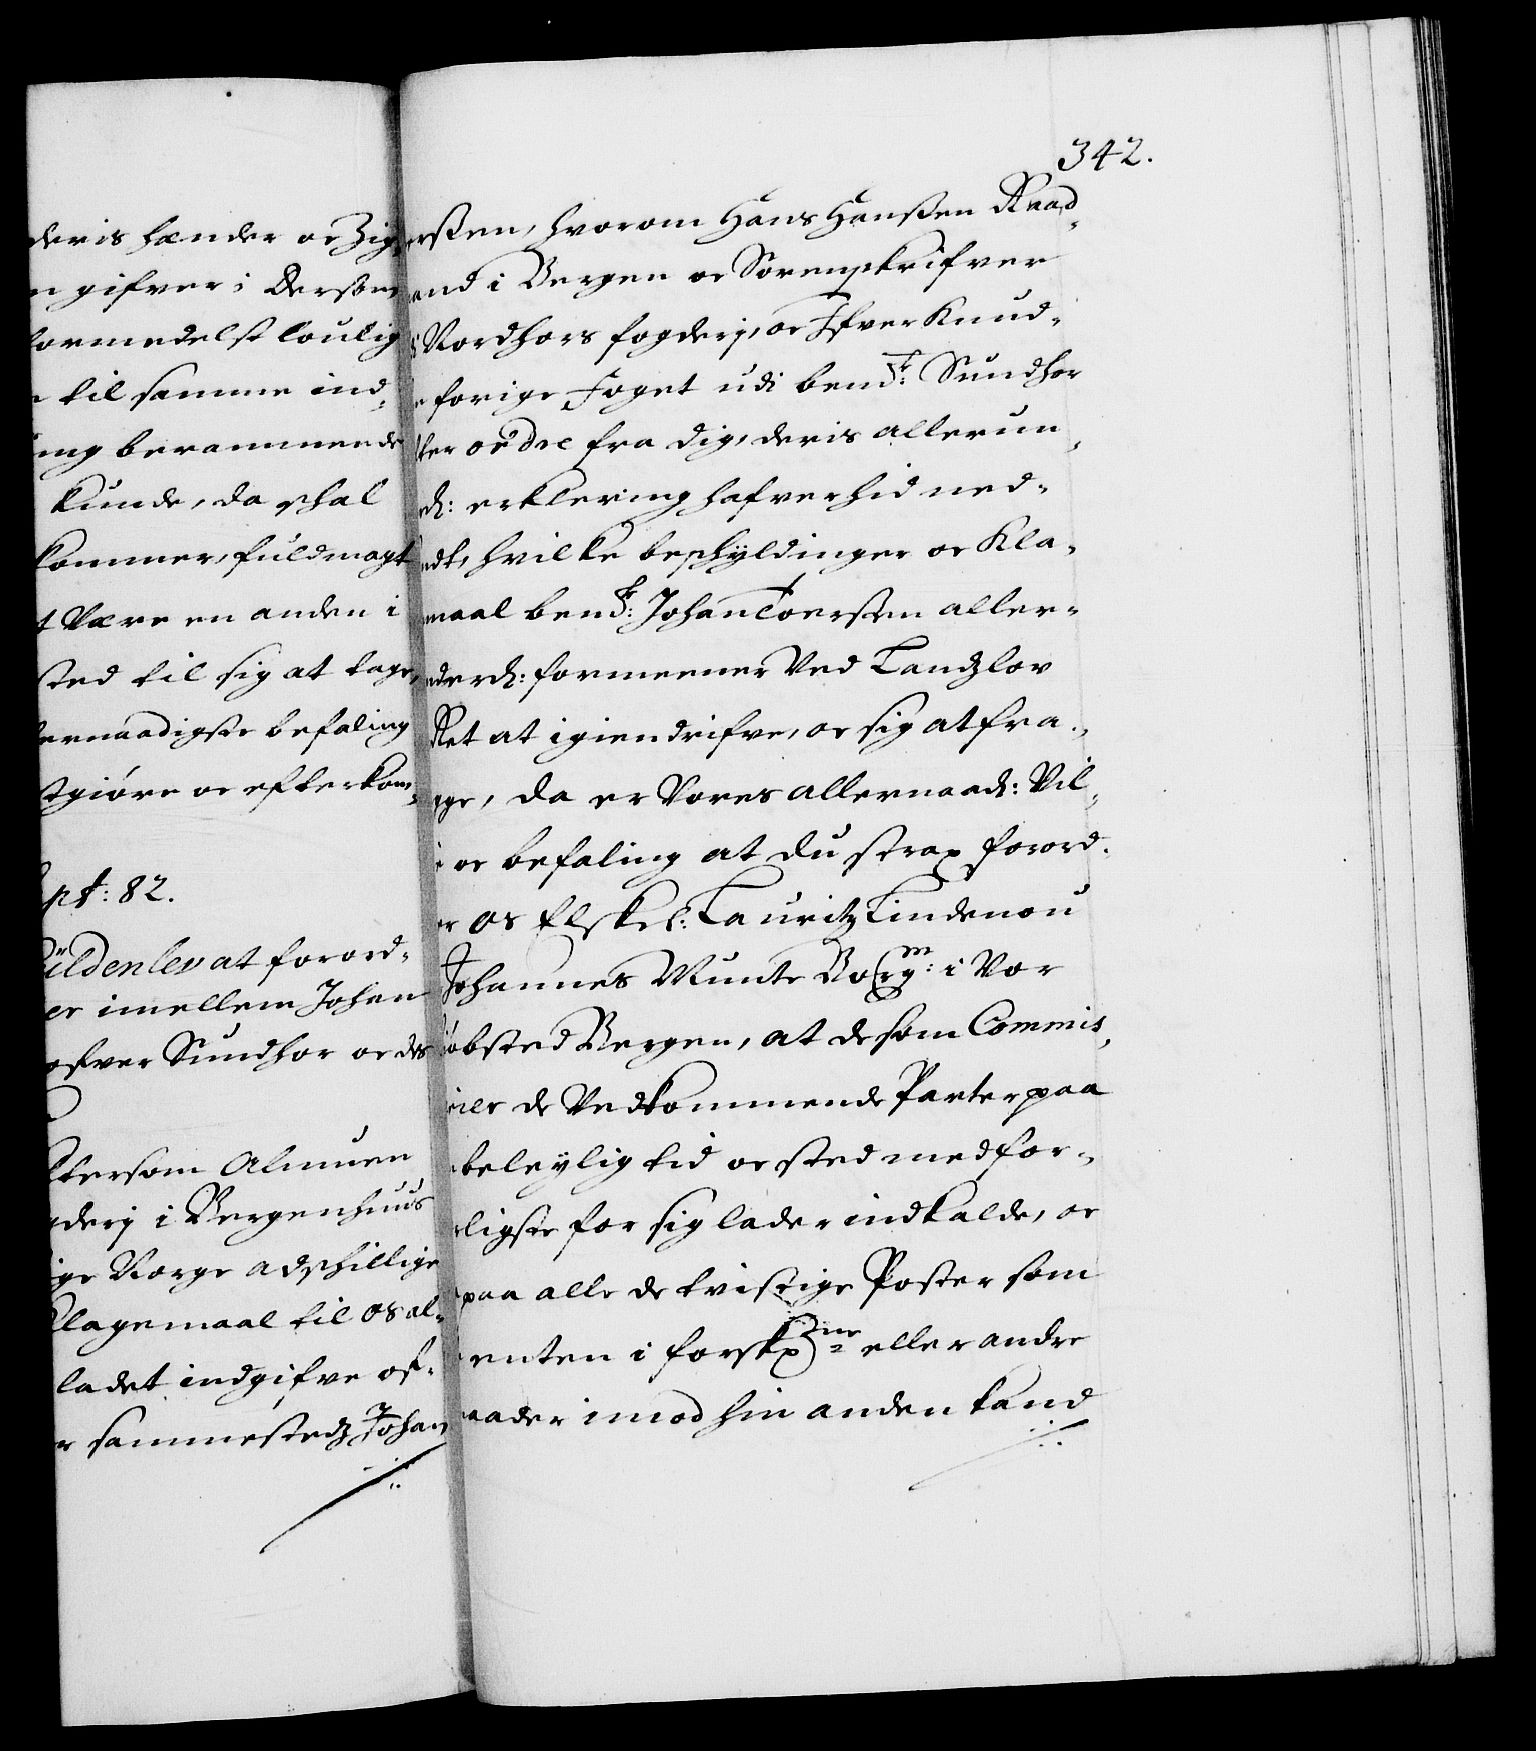 deris hænder oc Zig,
gifver; Dersom
formedelst loulig
til samme ind,
berammende
kunde, da schal
kommer, fuldmagt
være en anden i
sted til sig at tage,
befaling
oc efterkom,
pt: 82.
Güldenlev at forord,
imellem Johan
Sundhor oc des
som Almuen
i Bergenhuus
Norge adschillige
Klagemaal til os al,
ladet indgifve of,
sammestedz Johan
342.
erssen, hvorom Hans Hanssen Raad,
and i Bergen oc Sorenschrifver
Nordhors fogderj, oc Ifver Knud,
forige Foget udi bemt: Sundhor
ter ordre fra dig, deris allerun,
d: erklering hafver hid ned,
dt, hvilke beschyldinger oc Kla,
maal bemt: Johan Toerssen aller,
nderd: formeener Ved Landzlov
Ret at igiendrifve, oc sig at fra,
ge, da er Vores allernaad: Vil,
oc befaling at du strax forord,
er os Elskel: Lauritz Lindenou
Johannes Munte Borgm: i Vor
iøbsted Bergen, at de som Commis,
rier de Vedkommende Parter paa
beleylig tid oc sted med for,
ligste for sig lader indkalde, oc
paa alle de tvistige Poster som
enten i forskrne eller andre
maader imod hin anden kand